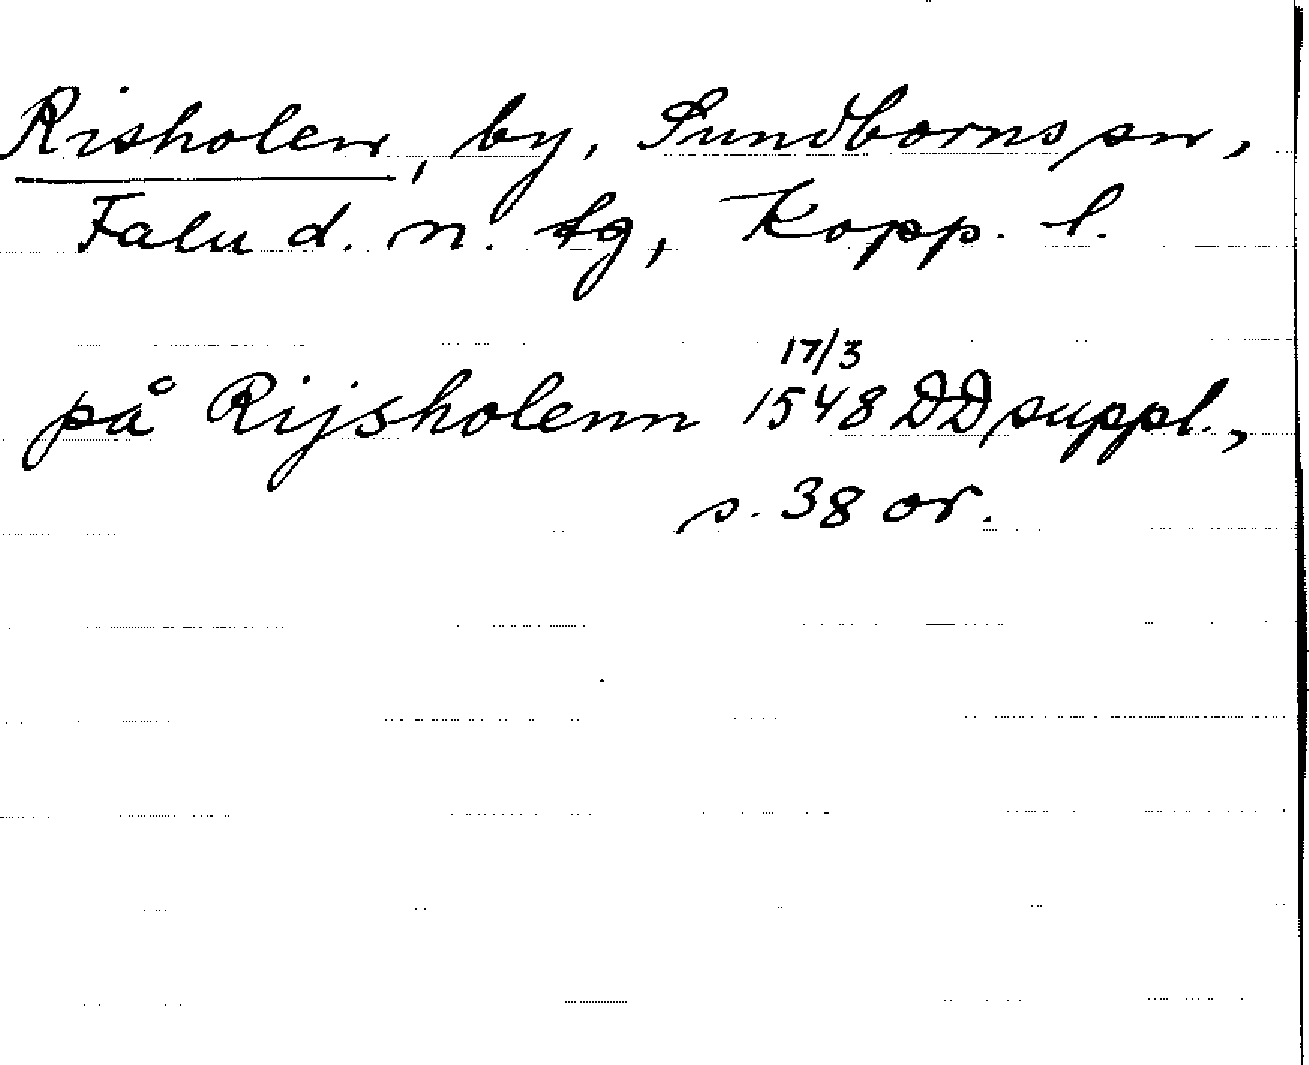 Risholen, by, Sundborns sn,
Falu d. n. tg, Kopp. l.
på Rijsholenn 17/3 1548 DD suppl.,
s. 38 or.